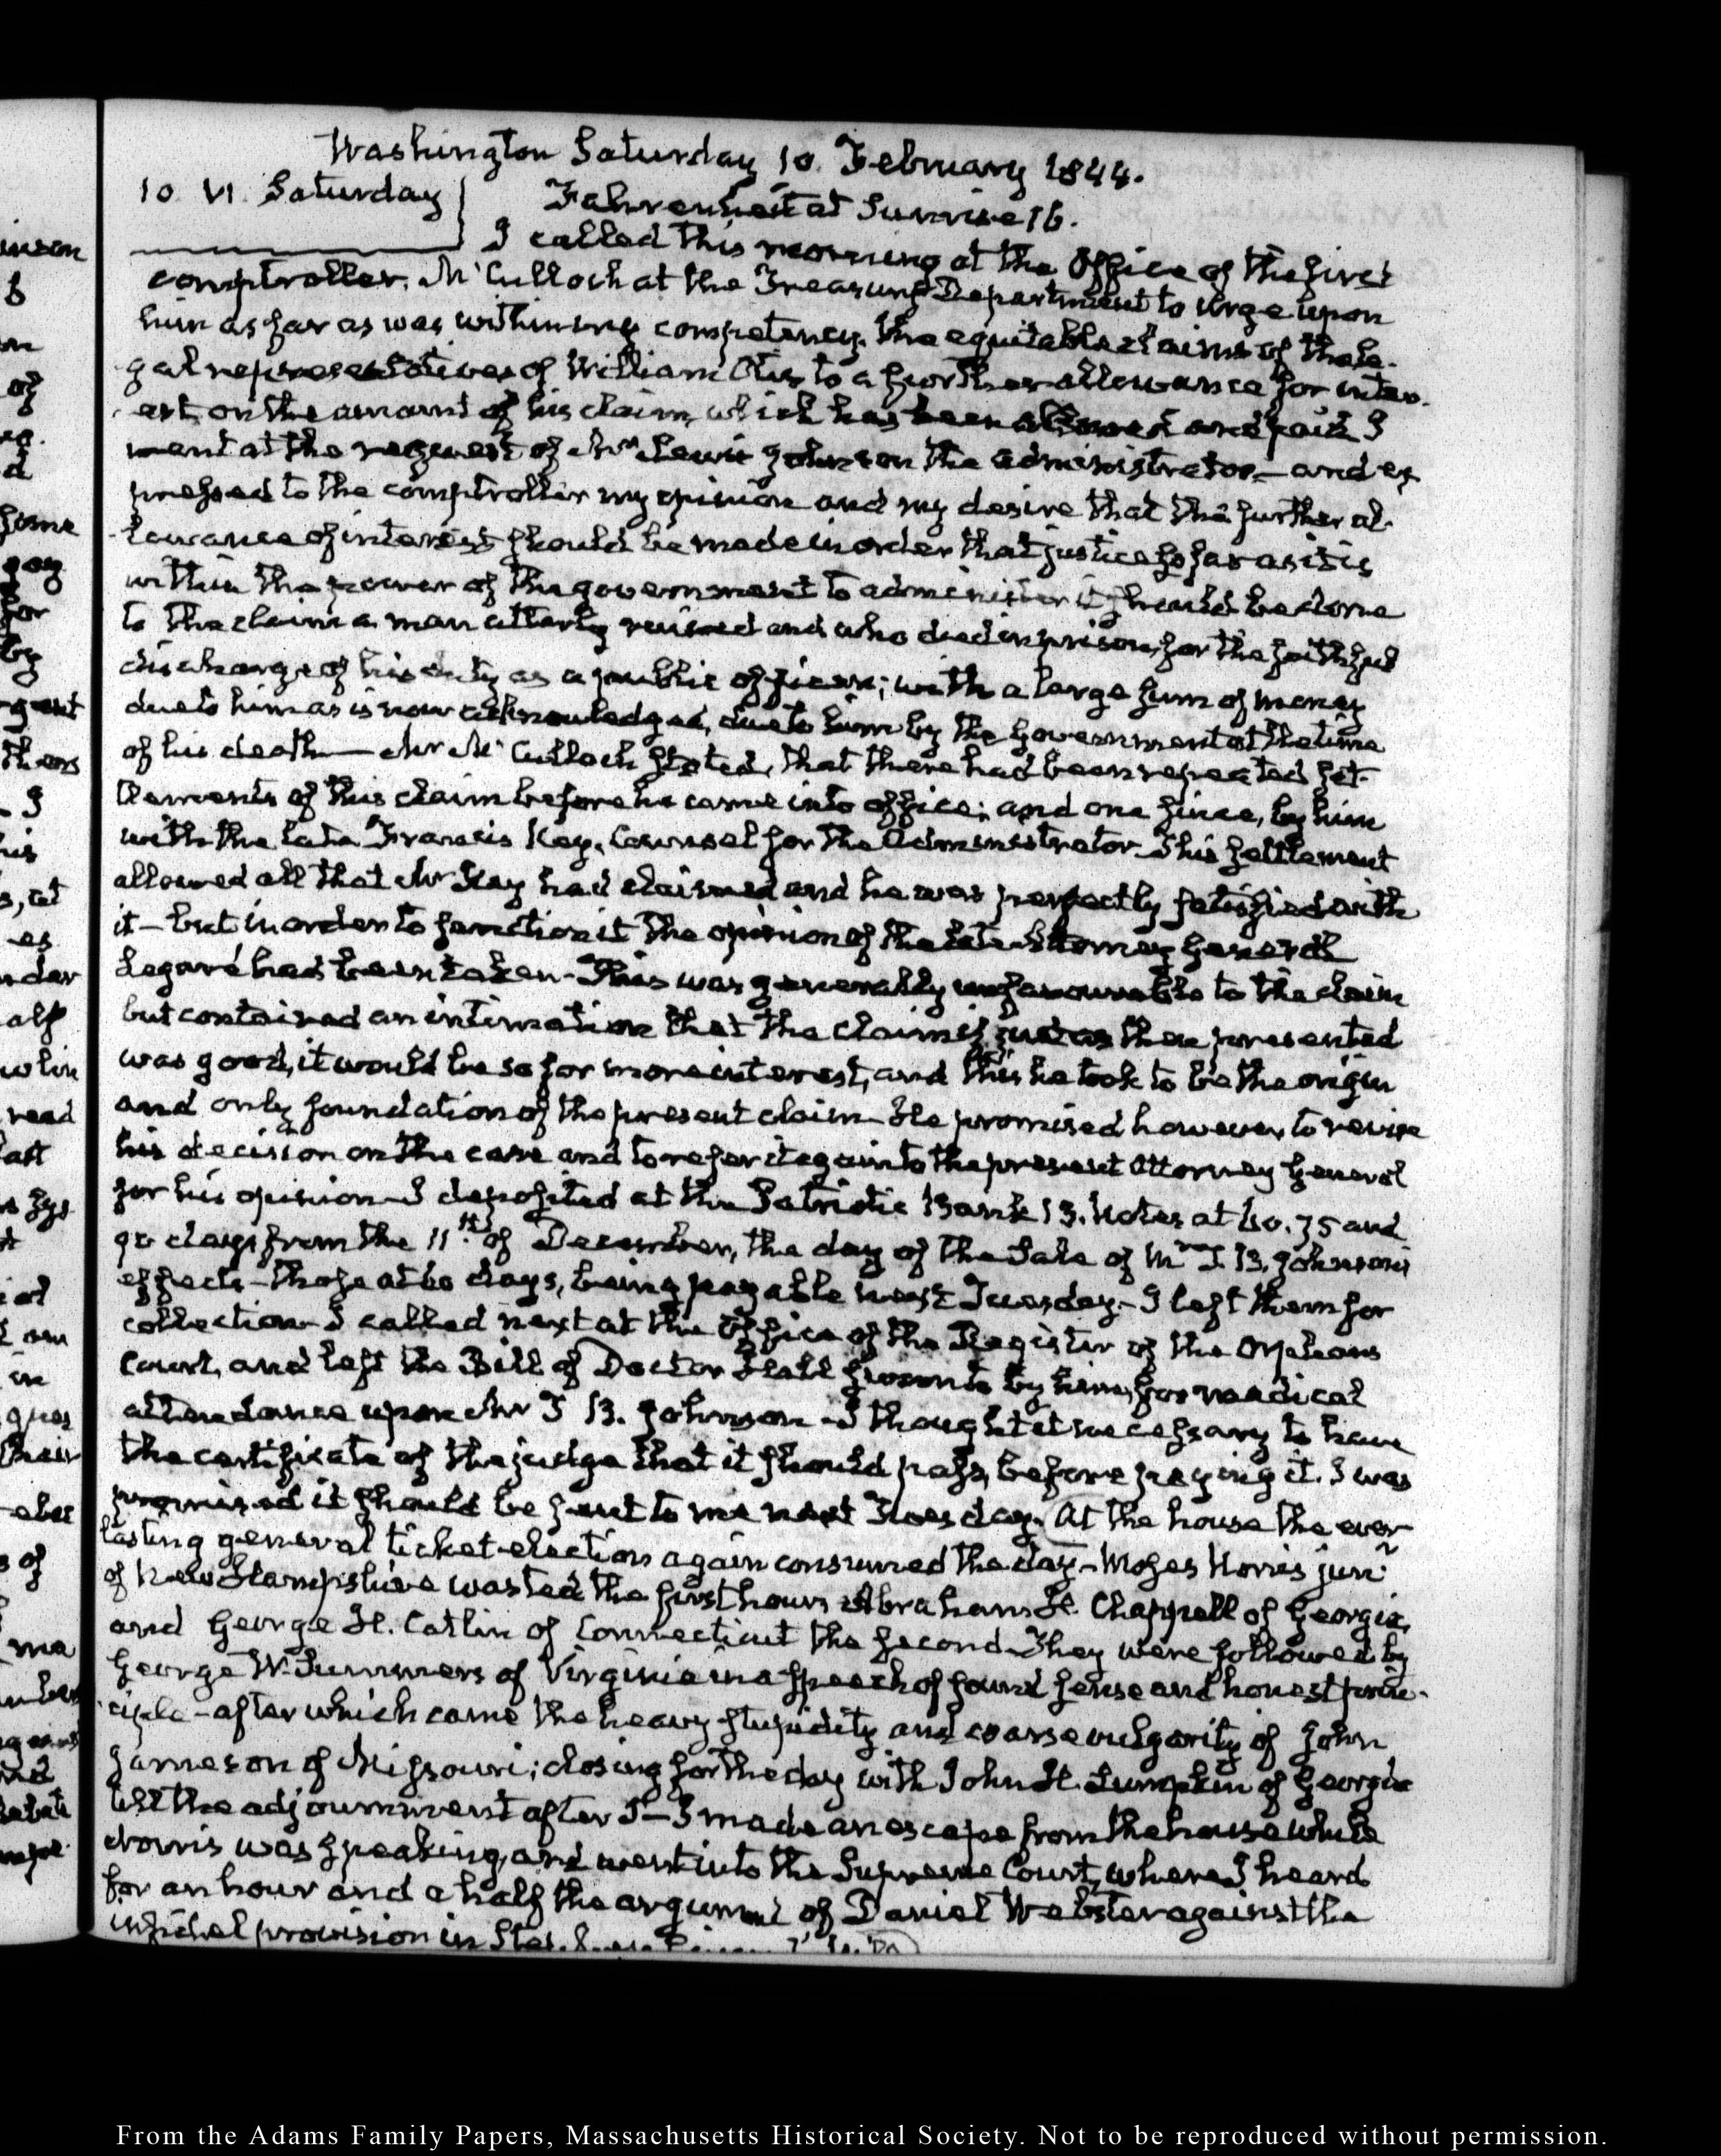 Washington Saturday 10. February 1844.
10. VI. Saturday
Fahrenheit at Sunrise 16.
I called this morning at the Office of the first
comptroller. McCulloch at the Treasury Department to urge upon
him as far as was within my competency, the equitable claims of the le-
gal representatives of William Otis to a further allowance for inter-
est on the amount of his claim, which has been allowed and paid I
went at the request of Mr Lewis Johnson the administrator— and ex
pressed to the comptroller my opinion and my desire that the further al-
lowance of interest should be made in order that justice so far as it is
within the power of the government to administer it, should be done
to the claim a man utterly ruined and who died in prison, for the faithful
discharge of his duty as a public officer; with a large sum of money
due to him as is now acknowledged, due to him by the Government at the time
of his death— Mr McCulloch stated, that there had been repeated set-
tlements of this claim before he came into office; and one since, by him
with the late Francis Key, Counsel for the Administrator. This settlement
allowed all that Mr Key had claimed and he was perfectly satisfied with
it— but in order to sanction it the opinion of the late Attorney General
Legaré had been taken— This was generally unfavourable to the claim
but contained an intimation that the claim if just as then presented
was good, it would be so for more interest, and this he took to be the origin
and only foundation of the present claim— He promised however to revise
his decision on the case and to refer it again to the present Attorney General
for his opinion— I deposited at the Patriotic Bank 13. Notes at 60. 75 and
90 days from the 11th. of December, the day of the Sale of Mrs T. B. Johnson's
effects— those at 60 days, being payable next Tuesday— I left them for
collection— I called next at the Office of the Register of the Orphans
Court, and left the Bill of Doctor Hall sent to by him, for medical
attendance upon Mr T B. Johnson— I thought it necessary to have
the certificate of the judge that it should pass, before paying it. I was
promised it should be sent to me next Tuesday. At the house the ever-
lasting general ticket election again consumed the day— Moses Norris junr
of New Hampshire wasted the first hour. Abraham H. Chappell of Georgia,
and George H. Catlin of Connecticut the second— They were followed by
George W. Summers of Virginia in a speech of sound sense and honest prin-
ciple— after which came the heavy stupidity and coarse vulgarity of John
Jameson of Missouri; closing for the day with John H. Lumpkin of Georgia
till the adjournment after 3— I made an escape from the house while
Norris was speaking, and went into the Supreme Court, where I heard
for an hour and a half the argument of Daniel Webster against the
infidel provision in
inson
of
home
for
by
thers
I
his
s, at
es
alf
read
last
am
in
ques
their
s of
ma